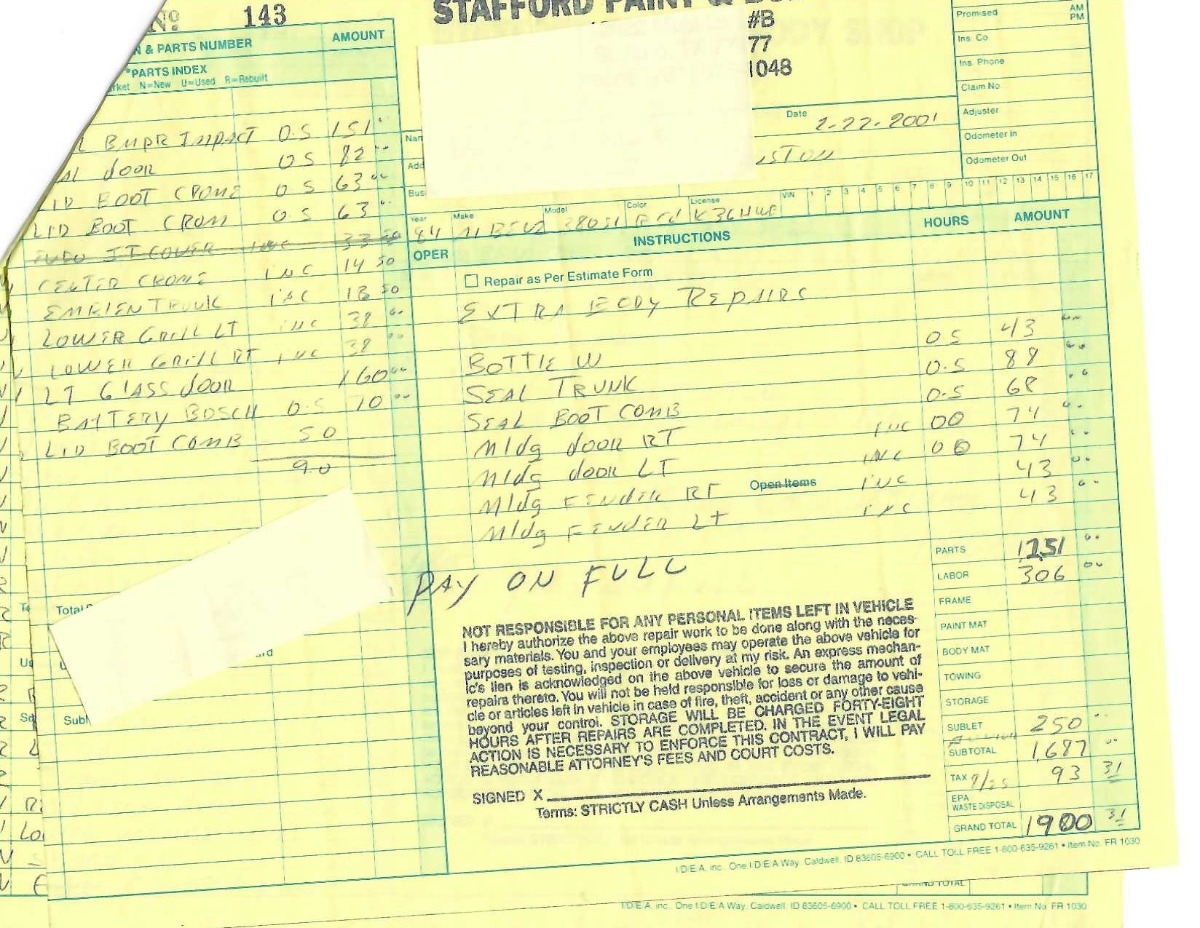 Nº 143
STAFFORD PAINT &
#B
77
1048
N & PARTS NUMBER AMOUNT
*PARTS INDEX
rket N=New U=Used R=Rebuilt
BMPR IMPACT 0 5 151
door 0 5 82
LID BOOT CROME 0 5 63
LID BOOT CROM 0 5 63
CENTER CROME INC 14 50
EMBLEN TRUNK INC 18 50
LOWER GRILL LT INC 38
LOWER GRILL RT INC 38
LT GLASS door 160
BATTERY BOSCH 0.5 10
LID BOOT COMB 50
9.0
Promised AM PM
Ins. Co
Ins. Phone
Claim No
Adjuster
Odometer In
Odometer Out
Date 2-22-2001
Nam
Add
Bus
VIN 1 2 3 4 5 6 7 8 9 10 11 12 13 14 15 16 17
Year Make Model Color License
84 380SL Red
OPER INSTRUCTIONS HOURS AMOUNT
Repair as Per Estimate Form
EXTRA BODY REPAIRS
BOTTLE W 0 5 43
SEAL TRUNK 0.5 88
SEAL BOOT COMB 0.5 68
Mldg door RT INC 00 74
Mldg door LT INC 00 74
Mldg FENDER RT Open Items INC 43
Mldg FENDER LT INC 43
PAY ON FULL
PARTS 1131
LABOR 306
FRAME
PAINT MAT
BODY MAT
TOWING
STORAGE
SUBLET 250
SUBTOTAL 1,687
TAX 93 31
EPA WASTE DISPOSAL
GRAND TOTAL 1900 31
NOT RESPONSIBLE FOR ANY PERSONAL ITEMS LEFT IN VEHICLE
I hereby authorize the above repair work to be done along with the neces-
sary materials. You and your employees may operate the above vehicle for
purposes of testing, inspection or delivery at my risk. An express mechan-
ic's lien is acknowledged on the above vehicle to secure the amount of
repairs thereto. You will not be held responsible for loss or damage to vehi-
cle or articles left in vehicle in case of fire, theft, accident or any other cause
beyond your control. STORAGE WILL BE CHARGED FORTY-EIGHT
HOURS AFTER REPAIRS ARE COMPLETED. IN THE EVENT LEGAL
ACTION IS NECESSARY TO ENFORCE THIS CONTRACT, I WILL PAY
REASONABLE ATTORNEY'S FEES AND COURT COSTS.
SIGNED X
Terms: STRICTLY CASH Unless Arrangements Made.
I/D/E/A, inc. One I/D/E/A Way, Caldwell, ID 83605-6900 • CALL TOLL FREE 1-800-635-9261 • Item No. FR 1030
GRAND TOTAL
I/D/E/A, inc. One I/D/E/A Way, Caldwell, ID 83605-6900 • CALL TOLL FREE 1-800-635-9261 • Item No. FR 1030